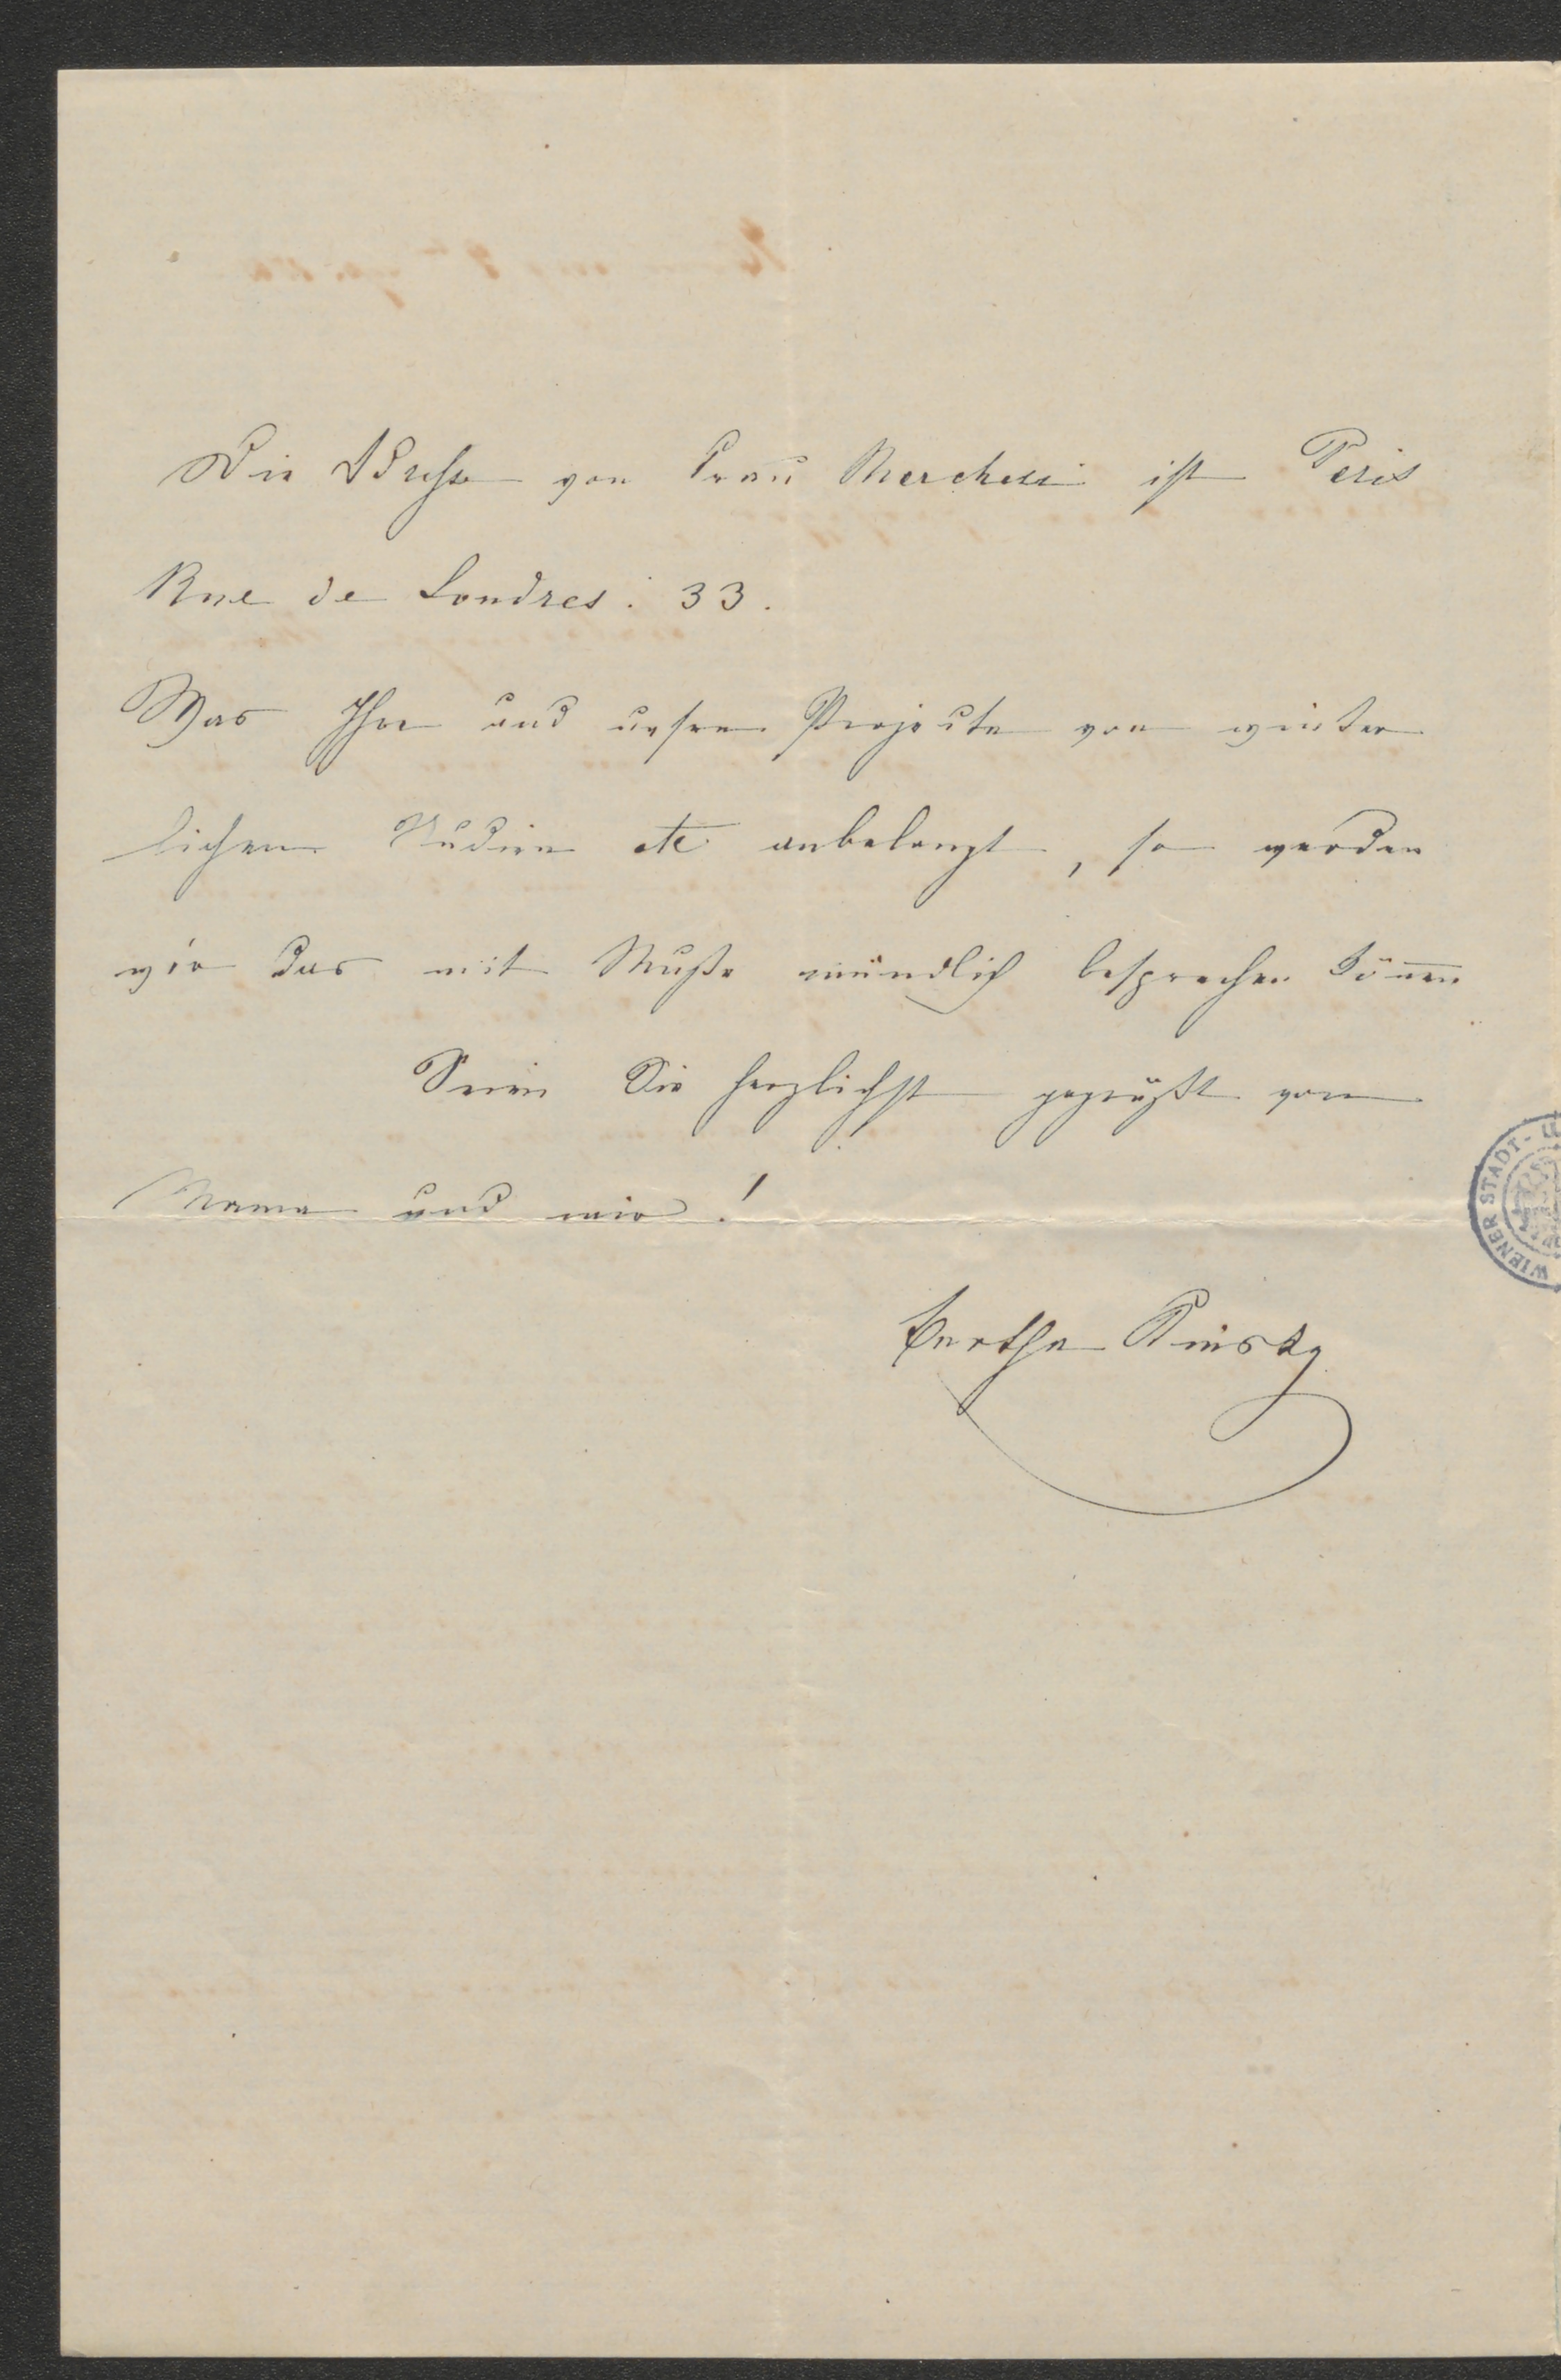 Die Adresse von Frau Marchesi ist Paris
Rue de Londres. 33.
Was Ihre und unsere Projecte von winter
lichen Studien etc anbelangt, so werden
wir das mit Muße mündlich besprechen können
Seien Sie herzlichst gegrüßt von
Mama und mir!
Bertha Kinsky
WIENER STADT-